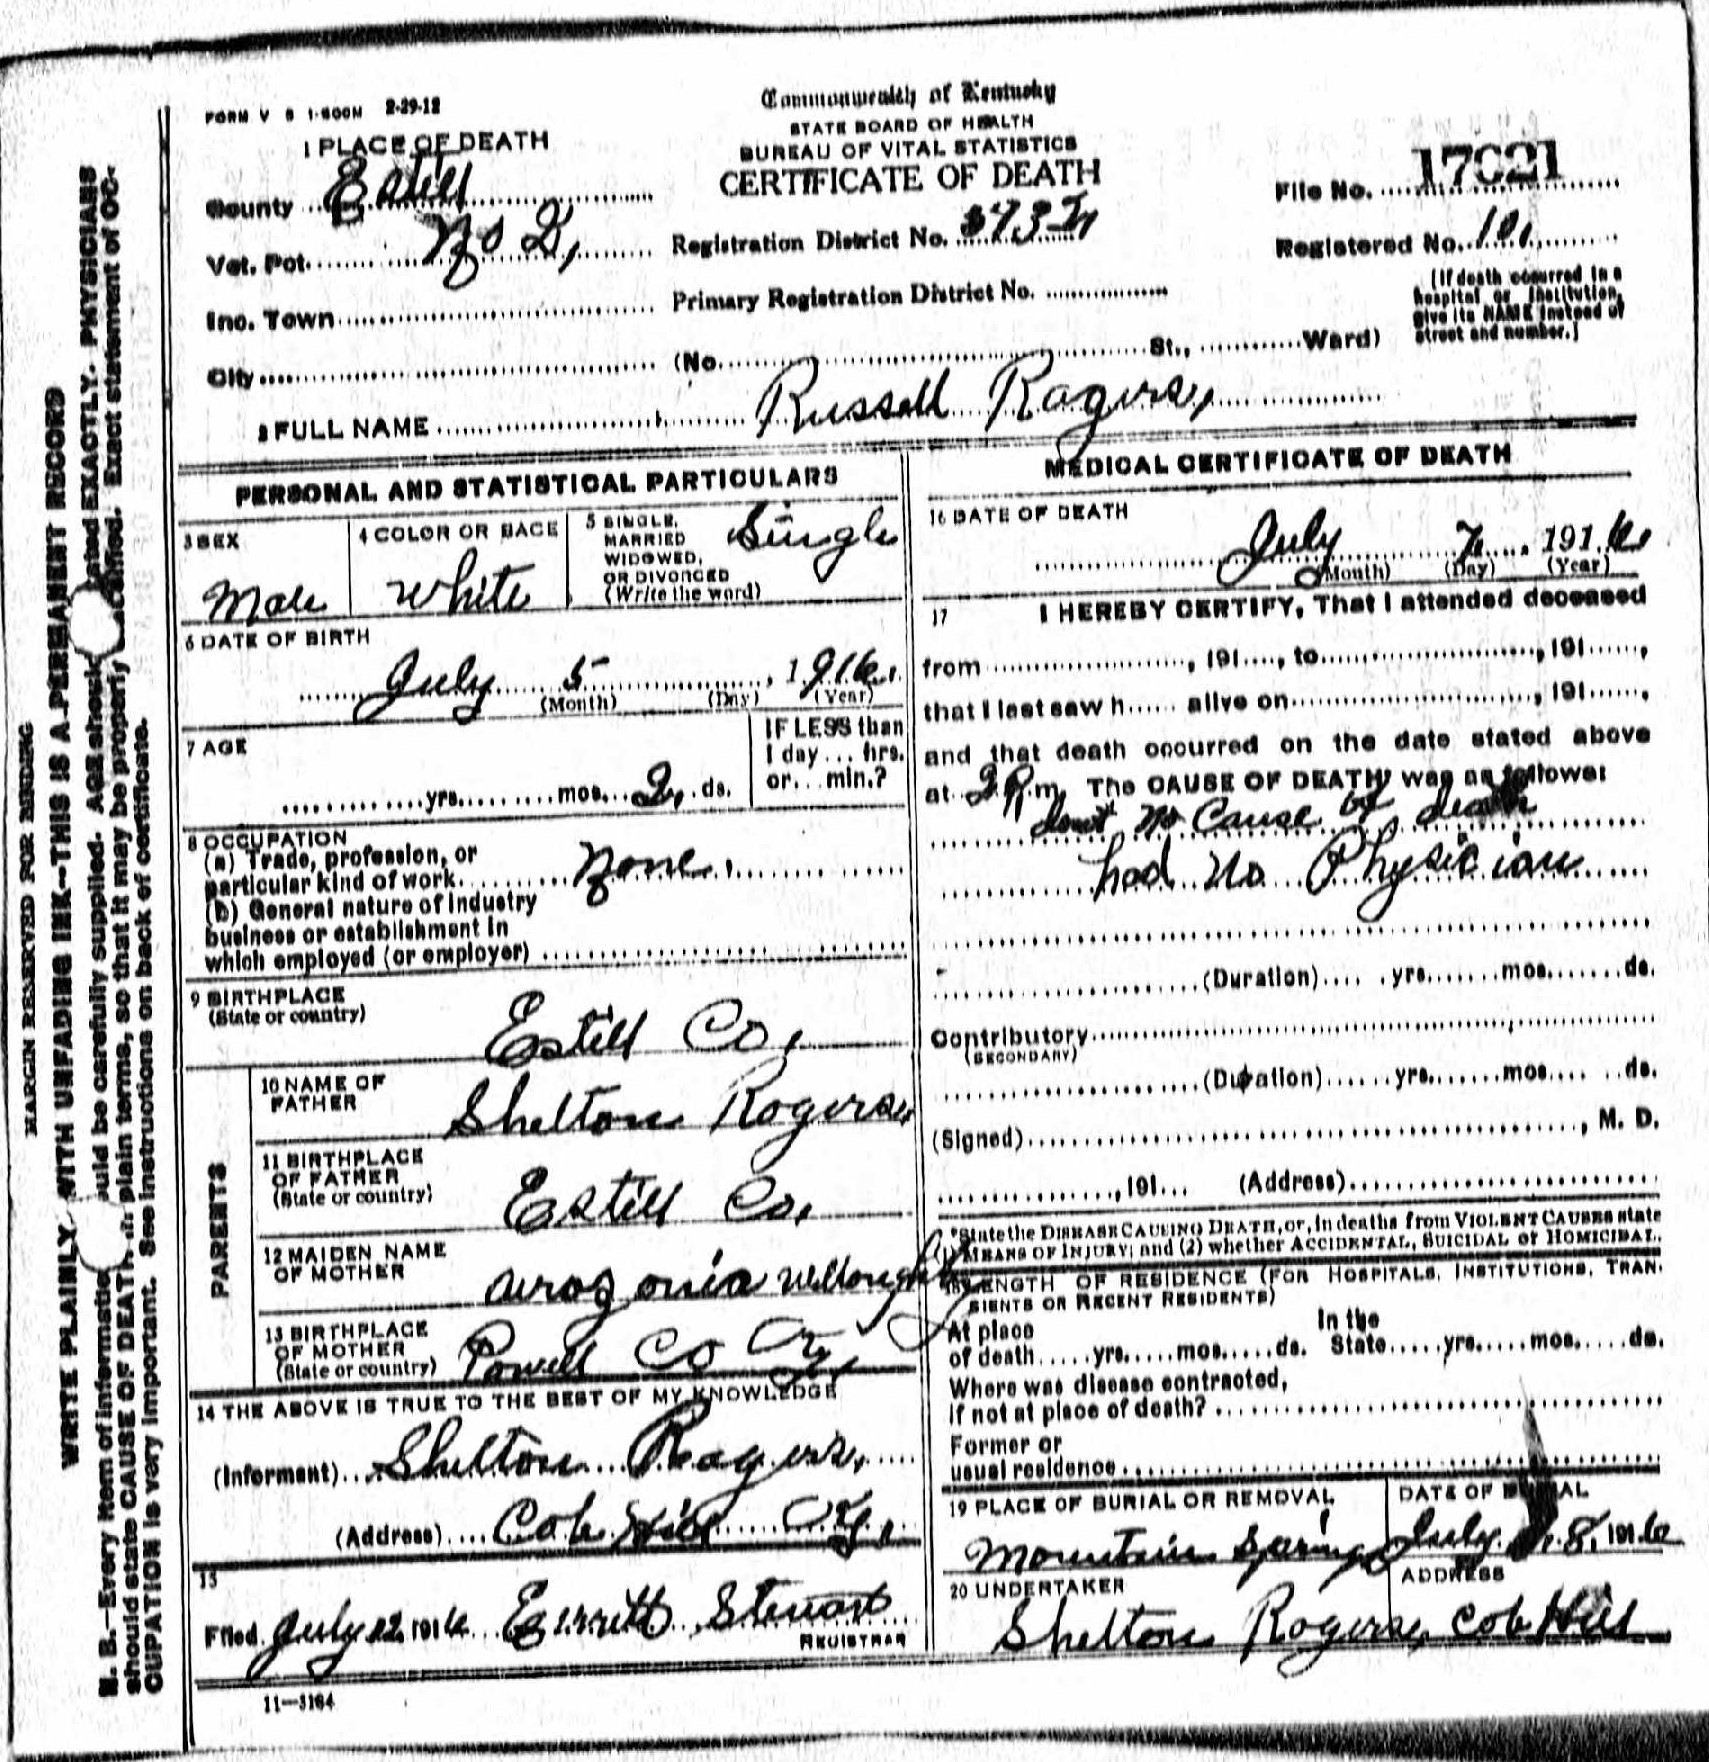 FORM V S 1-500M 2-29-12
Commonwealth of Kentucky
STATE BOARD OF HEALTH
BUREAU OF VITAL STATISTICS
CERTIFICATE OF DEATH
1 PLACE OF DEATH
County Estill
Vot. Pct. No 2,
Inc. Town
City
Registration District No.
Primary Registration District No.
(No. St., Ward)
File No. 17021
Registered No. 101
(If death occurred in a
hospital or institution,
give its NAME instead of
street and number.)
2 FULL NAME Russell Rogers,
PERSONAL AND STATISTICAL PARTICULARS
3 SEX
Male
4 COLOR OR RACE
White
5 SINGLE,
MARRIED
WIDOWED,
OR DIVORCED
(Write the word)
Single
6 DATE OF BIRTH
July 5, 1916.
(Month) (Day) (Year)
7 AGE
yrs. mos. 2, ds.
IF LESS than
1 day... hrs.
or... min.?
8 OCCUPATION
(a) Trade, profession, or
particular kind of work. None.
(b) General nature of industry
business or establishment in
which employed (or employer)
9 BIRTHPLACE
(State or country)
Estill Co,
PARENTS
10 NAME OF
FATHER
Shelton Rogers,
11 BIRTHPLACE
OF FATHER
(State or country)
Estill Co,
12 MAIDEN NAME
OF MOTHER
arrogonia Willoughby
13 BIRTHPLACE
OF MOTHER
(State or country)
Powell Co Ky,
14 THE ABOVE IS TRUE TO THE BEST OF MY KNOWLEDGE
(Informant) Shelton Rogers,
(Address) Cob Hill Ky,
15
Filed July 22 1916 Everett Stewart
REGISTRAR
11-3184
MEDICAL CERTIFICATE OF DEATH
16 DATE OF DEATH
July 7, 1916.
(Month) (Day) (Year)
17 I HEREBY CERTIFY, That I attended deceased
from , 191 , to , 191 ,
that I last saw h alive on , 191 ,
and that death occurred on the date stated above
at 2 P. m. The CAUSE OF DEATH was as follows:
dont no Cause of death
had no Physician
(Duration) yrs. mos. ds.
Contributory
(SECONDARY)
(Duration) yrs. mos. ds.
(Signed) , M. D.
, 191 (Address)
*State the DISEASE CAUSING DEATH, or, in deaths from VIOLENT CAUSES state
(1) MEANS OF INJURY; and (2) whether ACCIDENTAL, SUICIDAL or HOMICIDAL.
18 LENGTH OF RESIDENCE (FOR HOSPITALS, INSTITUTIONS, TRAN-
SIENTS OR RECENT RESIDENTS)
At place
of death yrs. mos. ds.
In the
State yrs. mos. ds.
Where was disease contracted,
if not at place of death?
Former or
usual residence
19 PLACE OF BURIAL OR REMOVAL
Mountain Springs
DATE OF BURIAL
July 8, 1916
20 UNDERTAKER
Shelton Rogers,
ADDRESS
Cob Hill
MARGIN RESERVED FOR BINDING
WRITE PLAINLY WITH UNFADING INK--THIS IS A PERMANENT RECORD
N. B.--Every item of information should be carefully supplied. AGE should be stated EXACTLY. PHYSICIANS
should state CAUSE OF DEATH in plain terms, so that it may be properly classified. Exact statement of OC-
CUPATION is very important. See instructions on back of certificate.